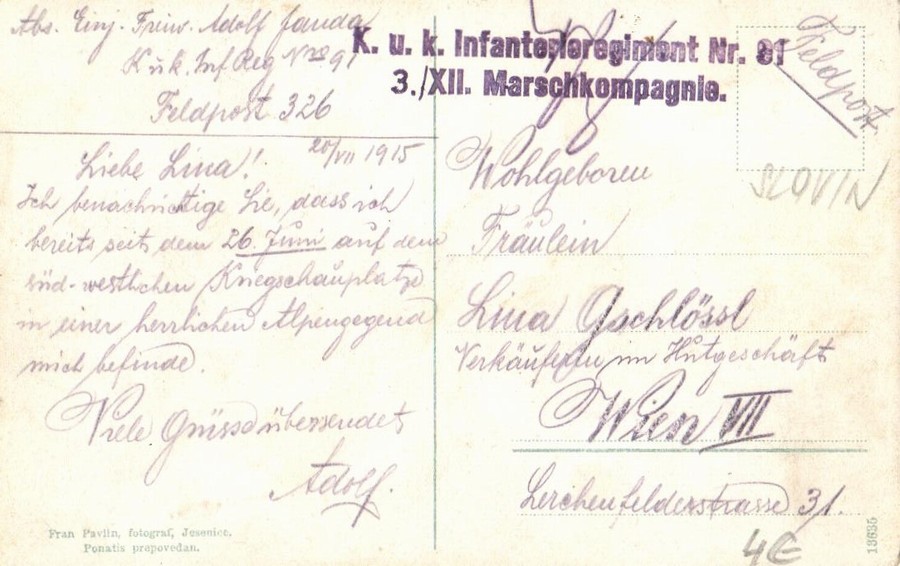 Abs. Einj. Freiw. Adolf Janda
K. u. k. Inf Reg Nro 91
Feldpost 326
K. u. k. Infanterieregiment Nr. 91
3./XII. Marschkompagnie.
Feldpost
SLOVIN
20/VII 1915
Liebe Lina!
Ich benachrichtige Sie, dass ich
bereits seit dem 26. Juni auf dem
süd-westlichen Kriegschauplatze
in einer herrlichen Alpengegend
mich befinde.
Viele Grüsse übersendet
Adolf.
Wohlgeboren
Fräulein
Lina Gschlössl
Verkäuferin im Hutgeschäft
Wien VII
Lerchenfelderstrasse 31.
Fran Pavlin, fotograf, Jesenice.
Ponatis prepovedan.
13635
4€